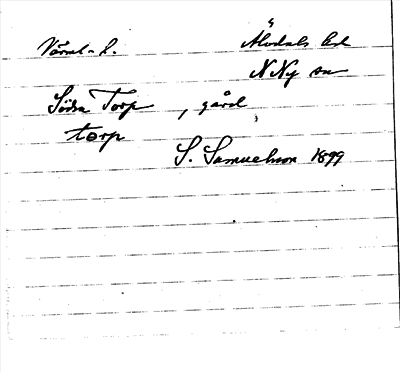 Värml. l. Älvdals hd
N Ny sn
Södra Torp, gård
torp
S. Samuelsson 1899